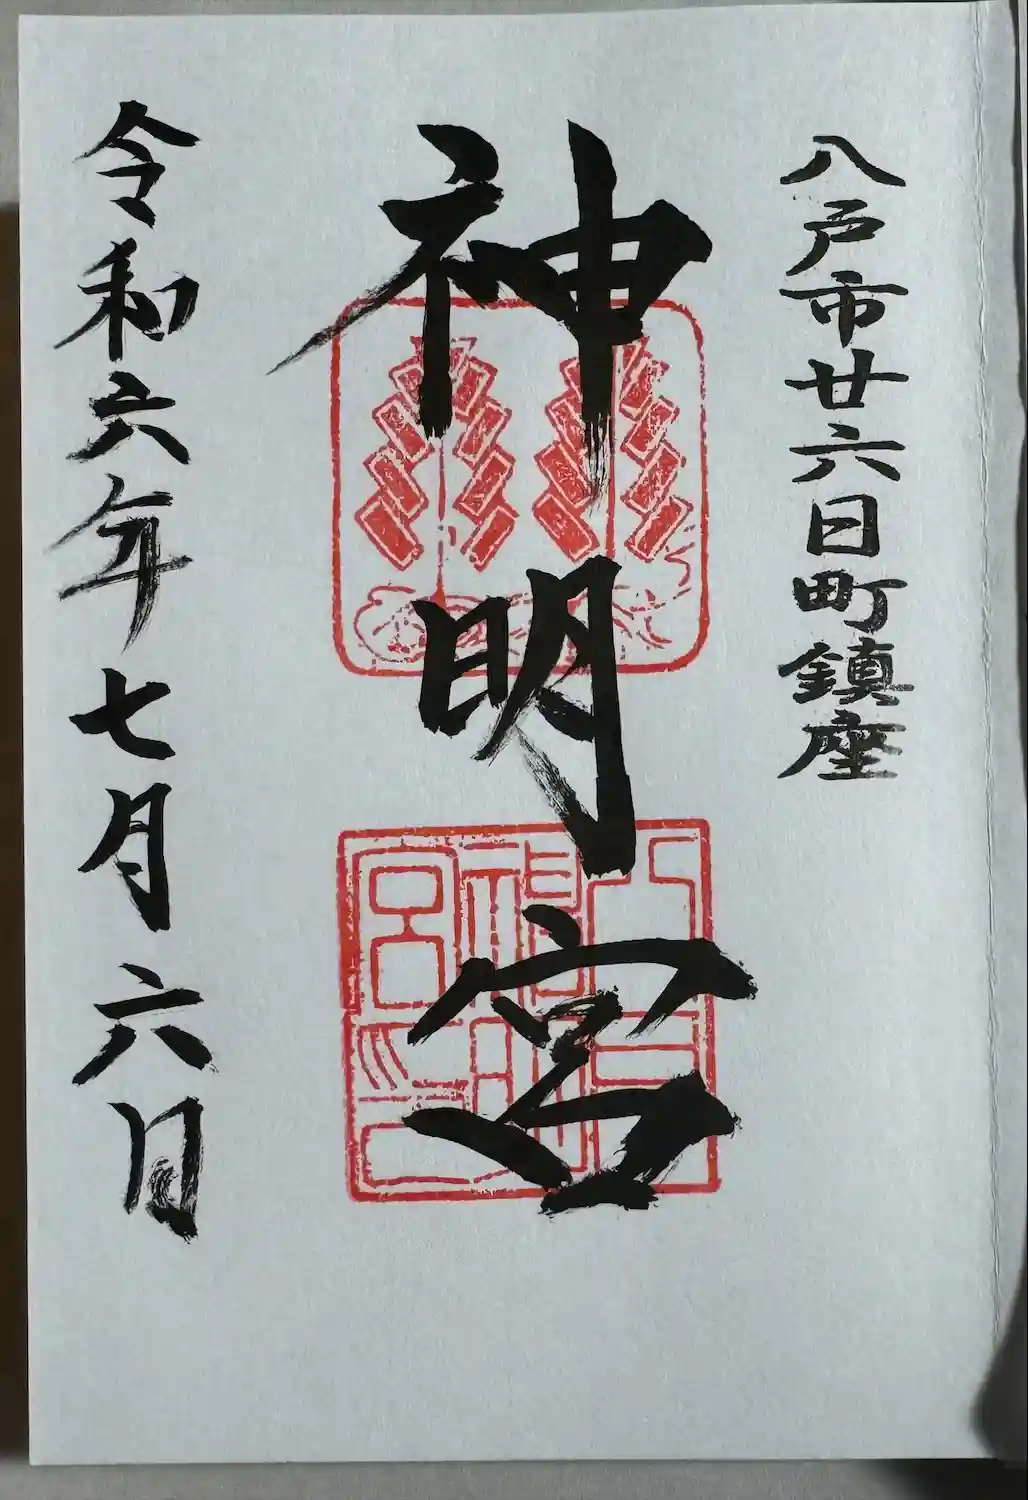 八戸市廿六日町鎮座
神明宮
令和六年七月六日
八戸神明宮印